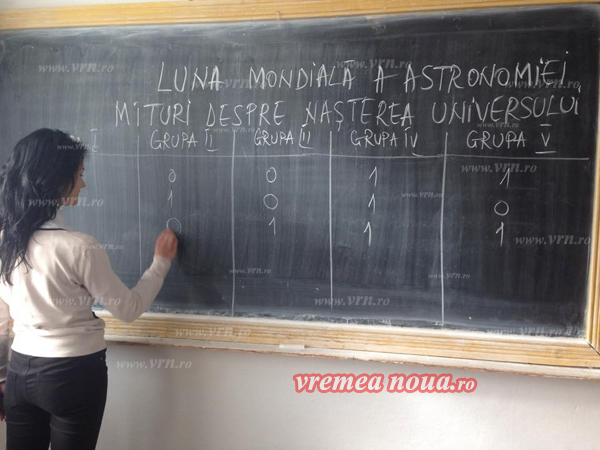 LUNA MONDIALA A ASTRONOMIEI
MITURI DESPRE NAȘTEREA UNIVERSULUI
I GRUPA II GRUPA III GRUPA IV GRUPA V
0 0 1 1
1 0 1 0
0 1 1 1
vremea noua.ro
www.vrn.ro